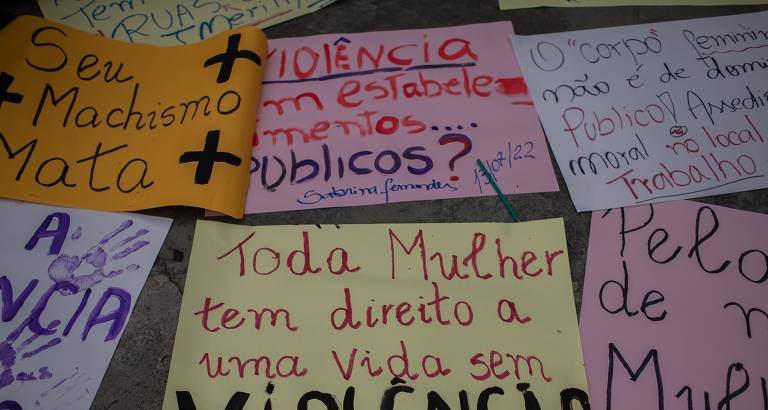 RUAS
Seu
+ Machismo +
Mata +
VIOLÊNCIA
Em estabele
cimentos....
PÚBLICOS?
Sabrina fernandes 13/07/22
O "corpo" feminin
não é de domi
Público! Assédi
moral no local
Trabalho
A
NCIA
Toda Mulher
tem direito a
uma vida sem
VIOLÊNCIA
Pelo
de
Mulh